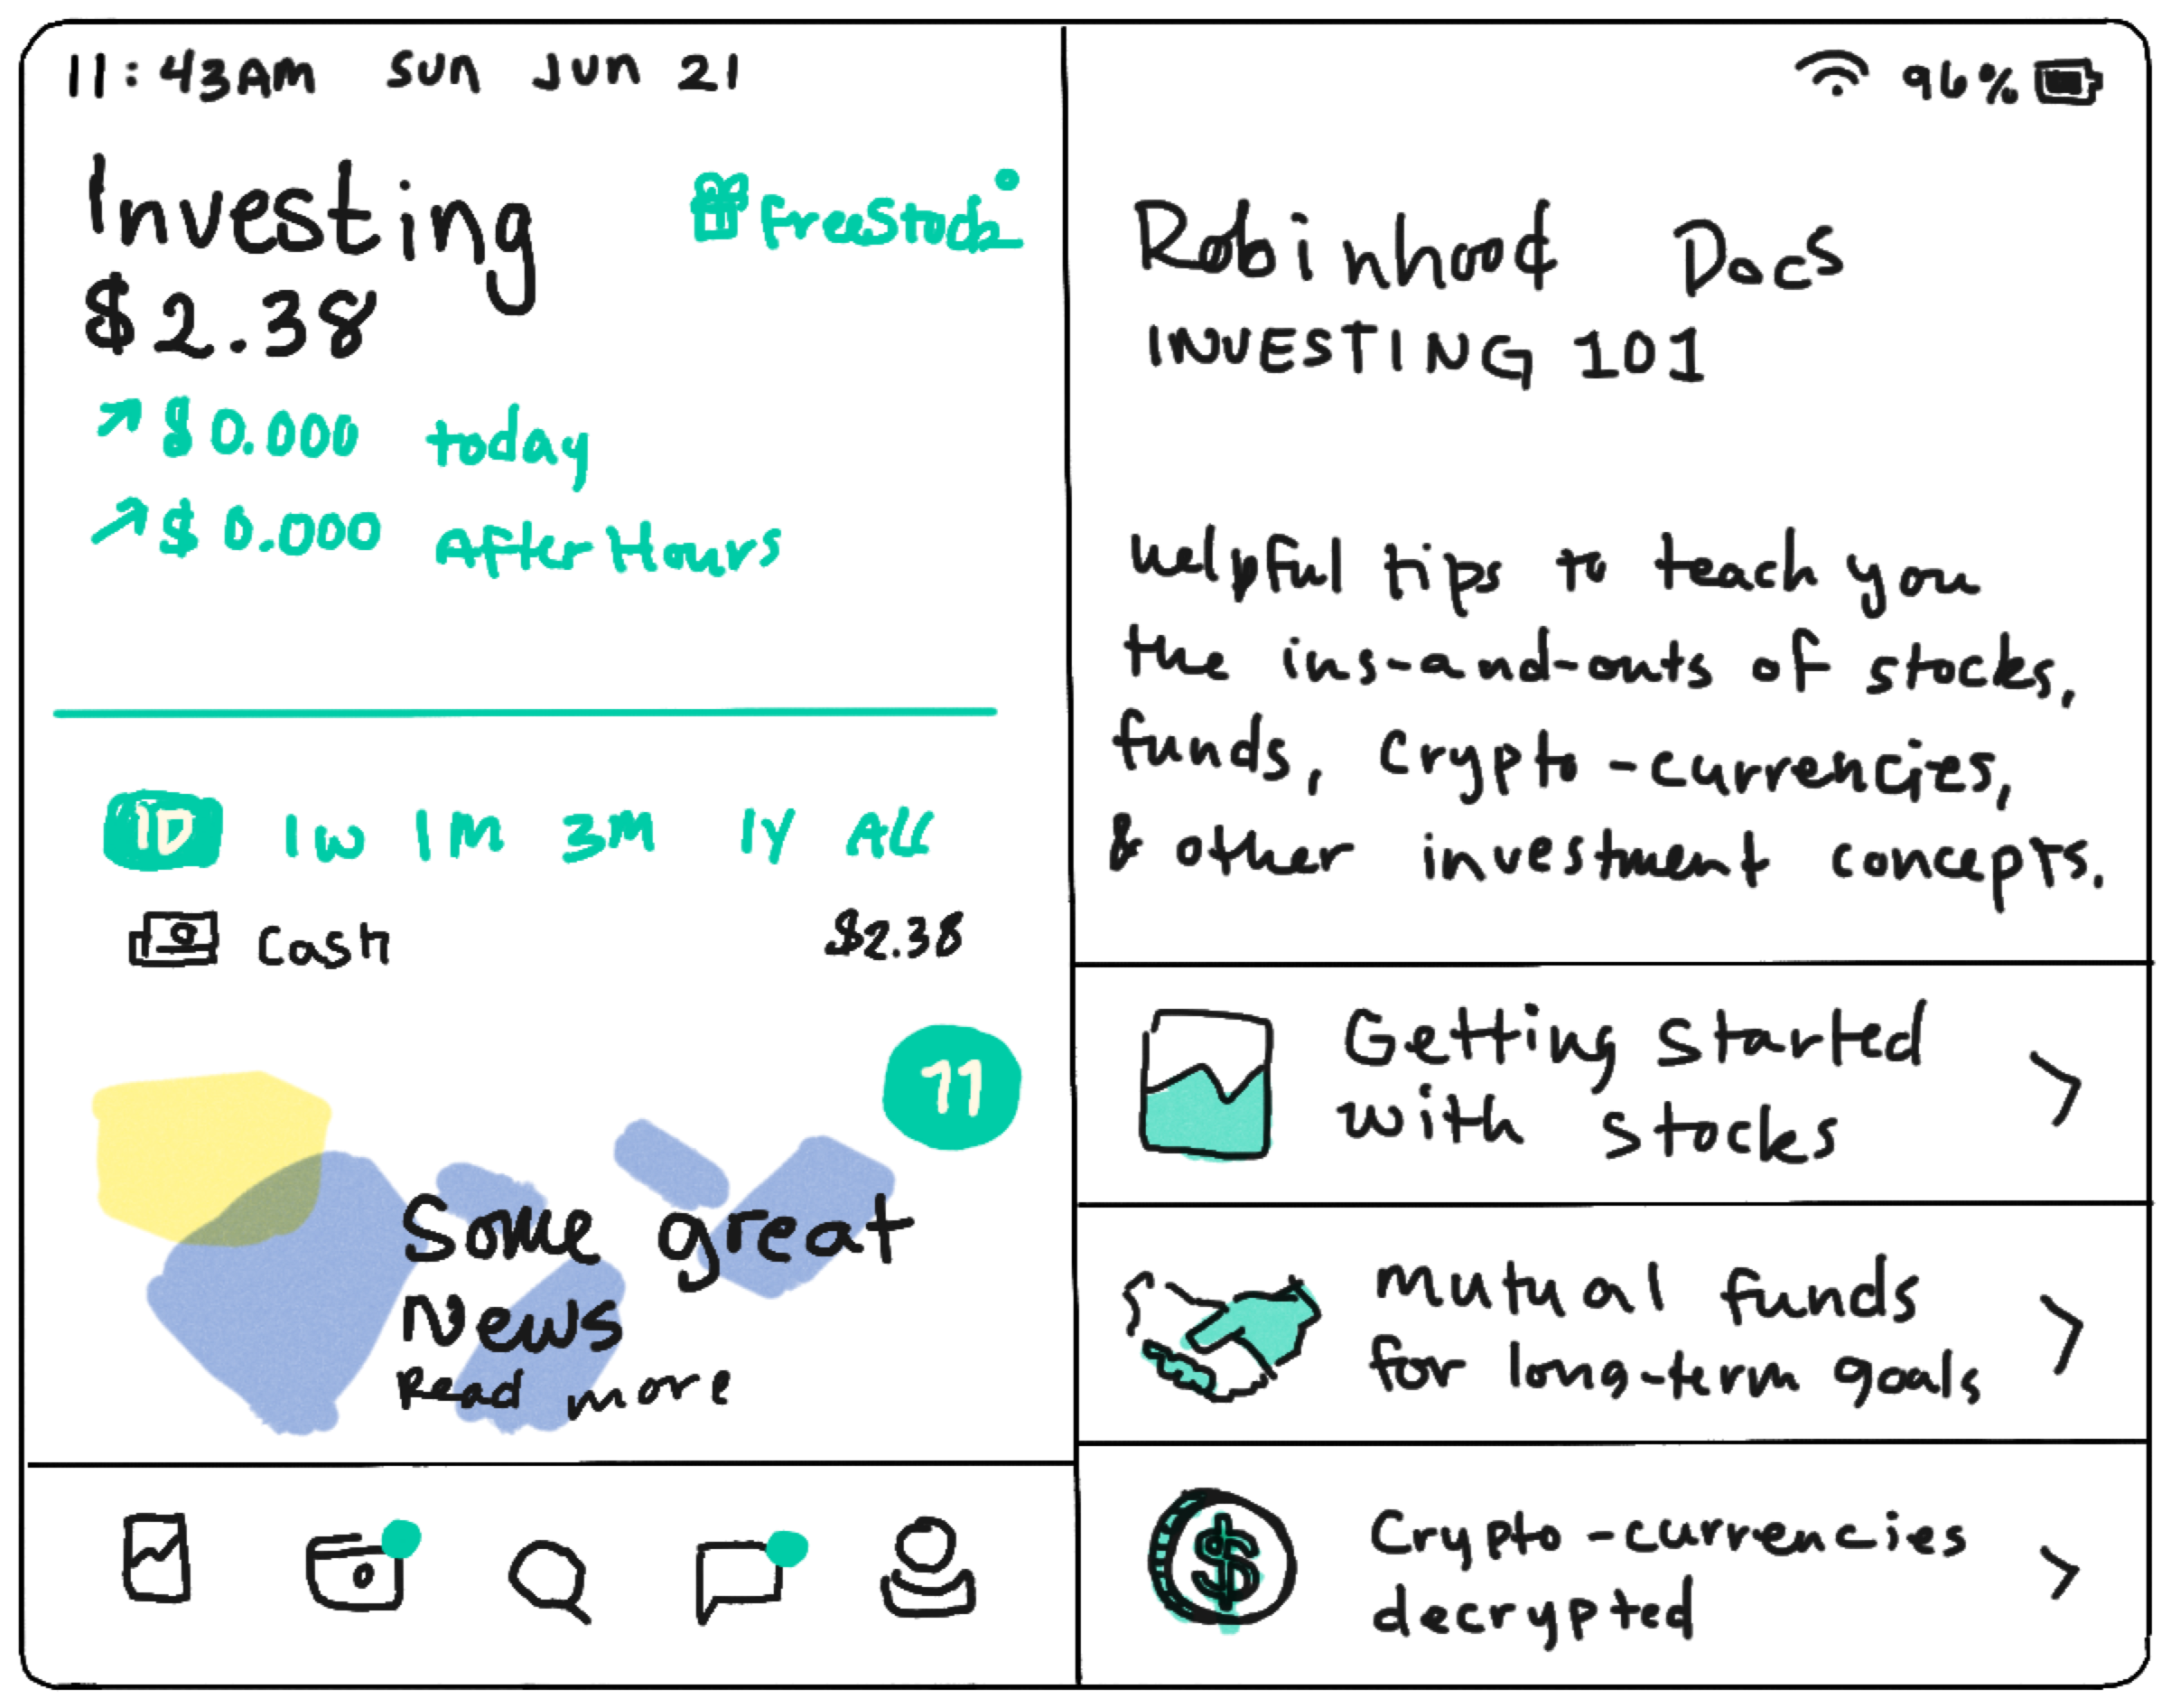 11:43AM Sun Jun 21
96%
Investing
Free Stock
$2.38
$0.000 today
$0.000 After Hours
1D 1W 1M 3M 1Y ALL
Cash $2.38
11
Some great
News
Read more
Robinhood Docs
INVESTING 101
Helpful tips to teach you
the ins-and-outs of stocks,
funds, Crypto-currencies,
& other investment concepts.
Getting started
with stocks
Mutual funds
for long-term goals
Crypto-currencies
decrypted